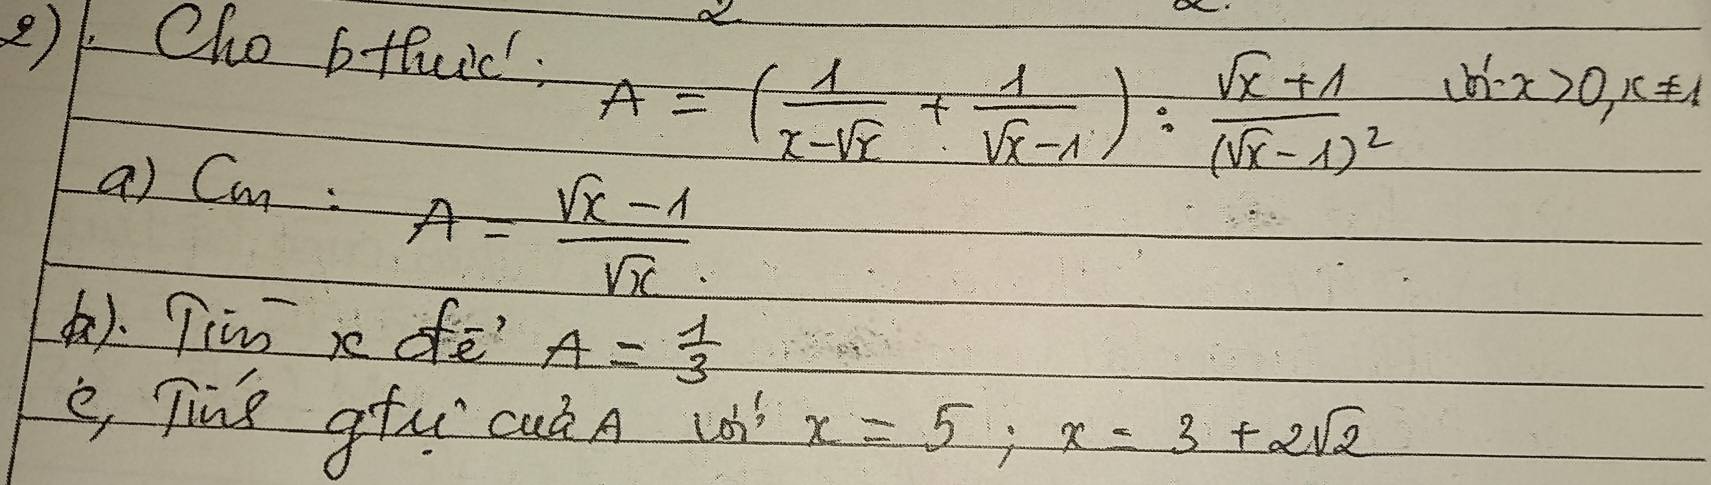 2). Cho b thức: A = (1/(x-√x) + 1/(√x-1)) : (√x+1)/(√x-1)² với x>0, x≠1
a) Cm : A = (√x-1)/√x.
b). Tìm x để A = 1/3
c, Tính gtrị của A với x = 5 ; x = 3 + 2√2